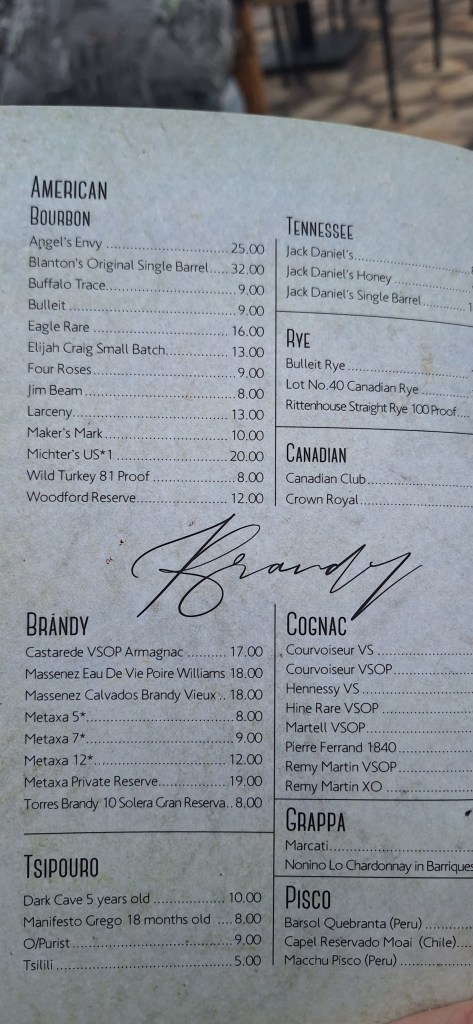 AMERICAN
BOURBON
Angel's Envy ........ 25.00
Blanton's Original Single Barrel..... 32.00
Buffalo Trace........ 9.00
Bulleit ........ 9.00
Eagle Rare ........ 16.00
Elijah Craig Small Batch........ 13.00
Four Roses........ 9.00
Jim Beam ........ 8.00
Larceny........ 13.00
Maker's Mark........ 10.00
Michter's US*1 ........ 20.00
Wild Turkey 81 Proof ........ 8.00
Woodford Reserve........ 12.00
TENNESSEE
Jack Daniel's........
Jack Daniel's Honey ........
Jack Daniel's Single Barrel........ 1
RYE
Bulleit Rye ........
Lot No.40 Canadian Rye ........
Rittenhouse Straight Rye 100 Proof....
CANADIAN
Canadian Club........
Crown Royal........
Brandy
BRANDY
Castarede VSOP Armagnac .......... 17.00
Massenez Eau De Vie Poire Williams 18.00
Massenez Calvados Brandy Vieux .. 18.00
Metaxa 5*........ 8.00
Metaxa 7*........ 9.00
Metaxa 12*........ 12.00
Metaxa Private Reserve........ 19.00
Torres Brandy 10 Solera Gran Reserva.. 8,00
TSIPOURO
Dark Cave 5 years old ........ 10.00
Manifesto Grego 18 months old .... 8.00
O/Purist ........ 9.00
Tsilili ........ 5.00
COGNAC
Courvoiseur VS ........
Courvoiseur VSOP........
Hennessy VS ........
Hine Rare VSOP ........
Martell VSOP........
Pierre Ferrand 1840........
Remy Martin VSOP........
Remy Martin XO ........
GRAPPA
Marcati........
Nonino Lo Chardonnay in Barriques
PISCO
Barsol Quebranta (Peru) ........
Capel Reservado Moai (Chile)....
Macchu Pisco (Peru) ........